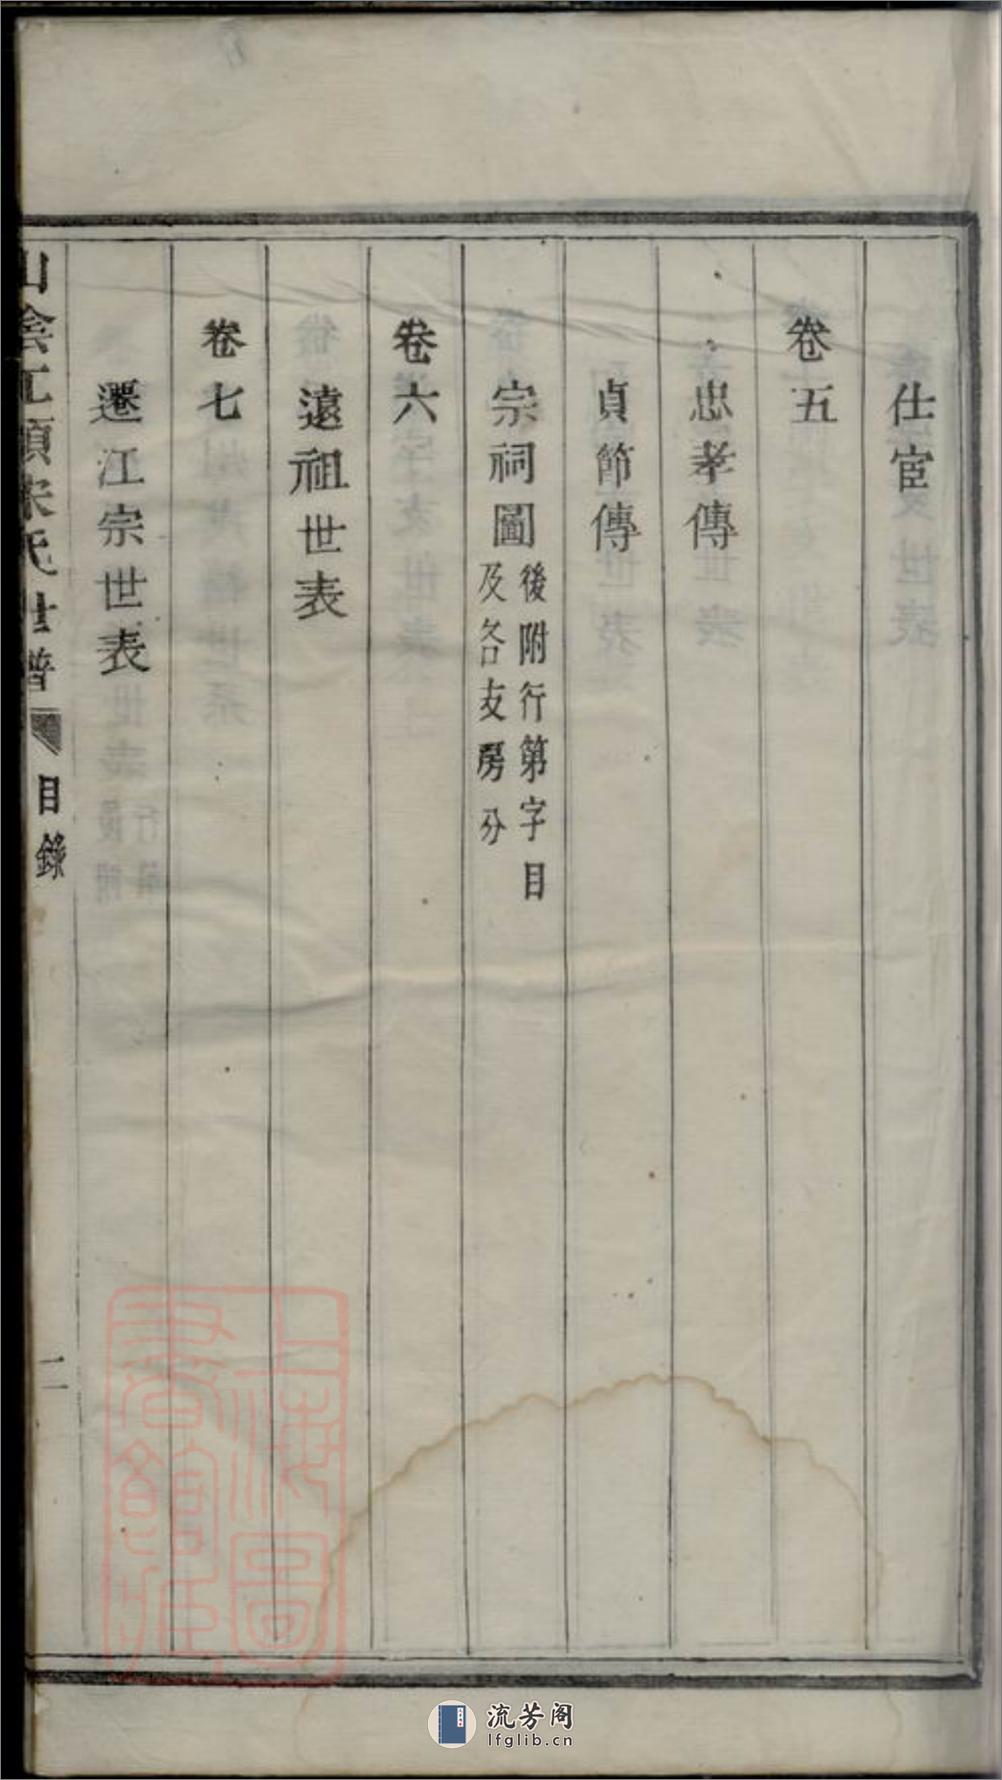 仕宦
卷五
忠孝傳
貞節傳
宗祠圖
後附行第字目
及各支房分
卷六
遠祖世表
卷七
遷江宗世表
山陰江頭宋氏世譜
目錄
二
上海圖
書館藏
流芳阁
lfglib.cn